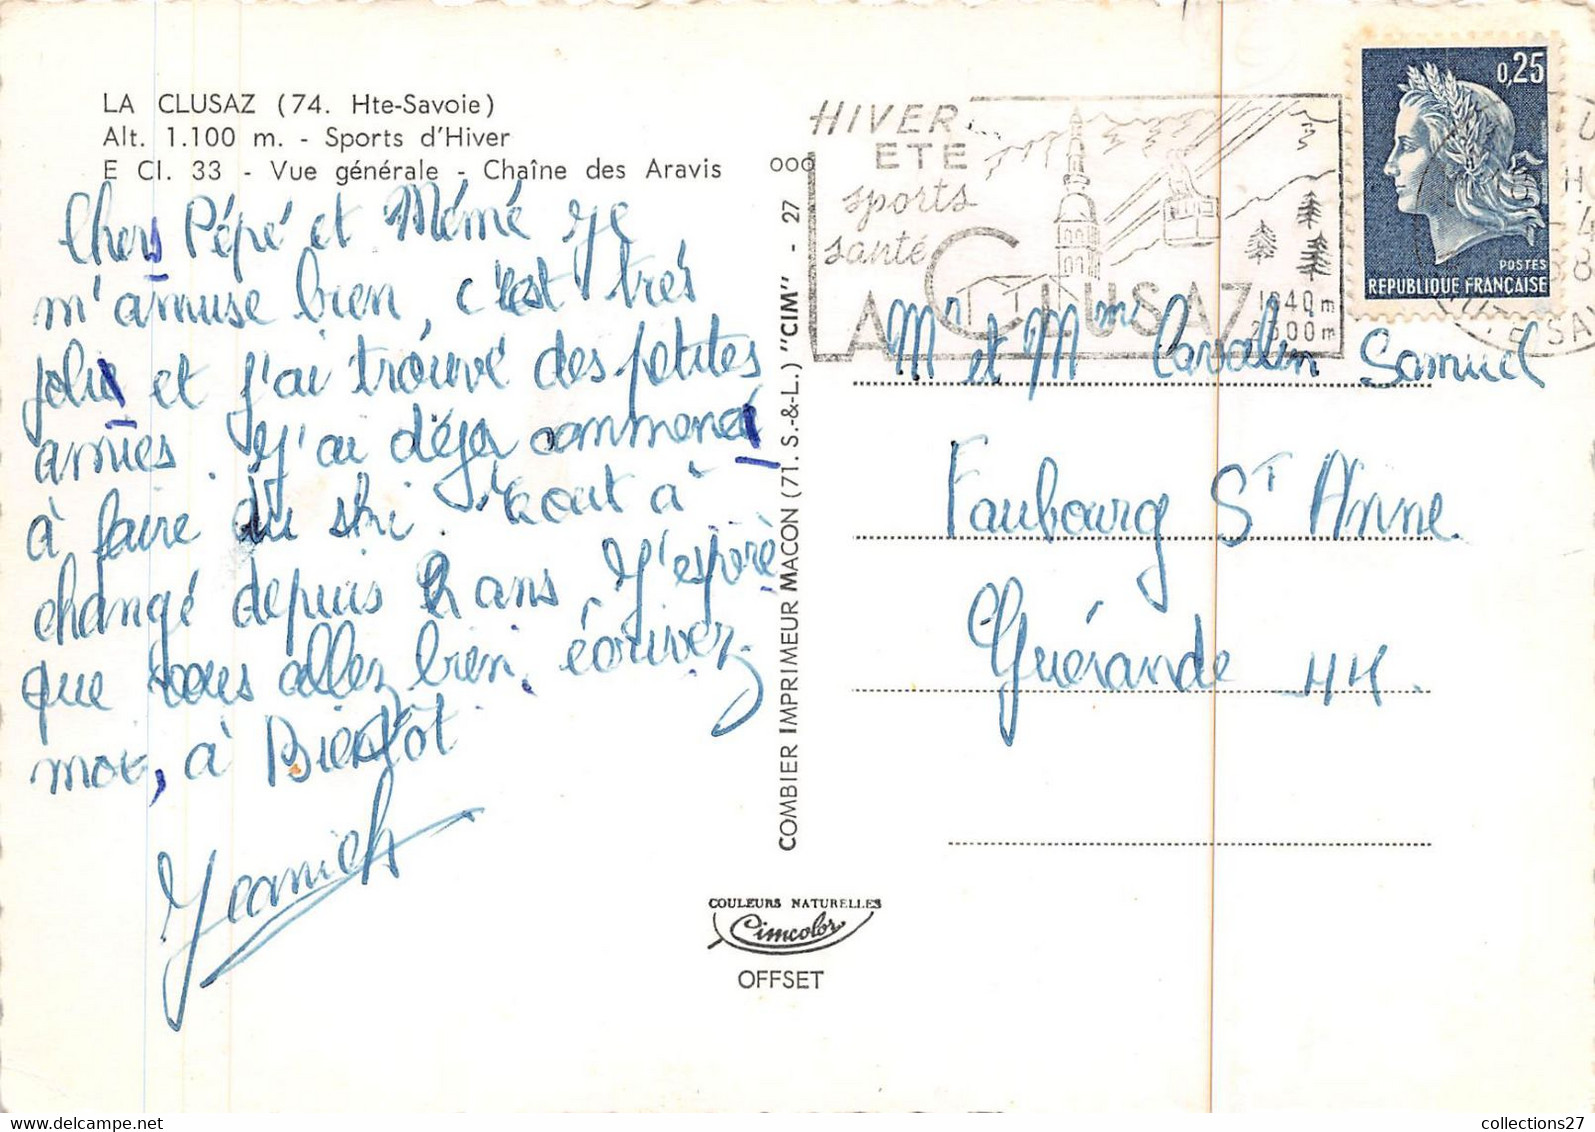 LA CLUSAZ (74. Hte-Savoie)
Alt. 1.100 m. - Sports d'Hiver
E Cl. 33 - Vue générale - Chaîne des Aravis
Chers Pépé et Mémé je
m'amuse bien, c'est très
jolie et j'ai trouvé des petites
amies. J'ai déja commencé
à faire du ski. Tout à
changé depuis 2 ans, J'espère
que vous allez bien, écrivez
moi, à Bientôt
Jeanick
COMBIER IMPRIMEUR MACON (71. S.-&-L.) "CIM" - 27
ooo
COULEURS NATURELLES
Cimcolor
OFFSET
HIVER
ETE
sports
santé
LA CLUSAZ
1040m
2600m
0,25
POSTES
REPUBLIQUE FRANÇAISE
Mr et Mme Cavalin Samuel
Faubourg St Anne.
Guérande 44.
collections27